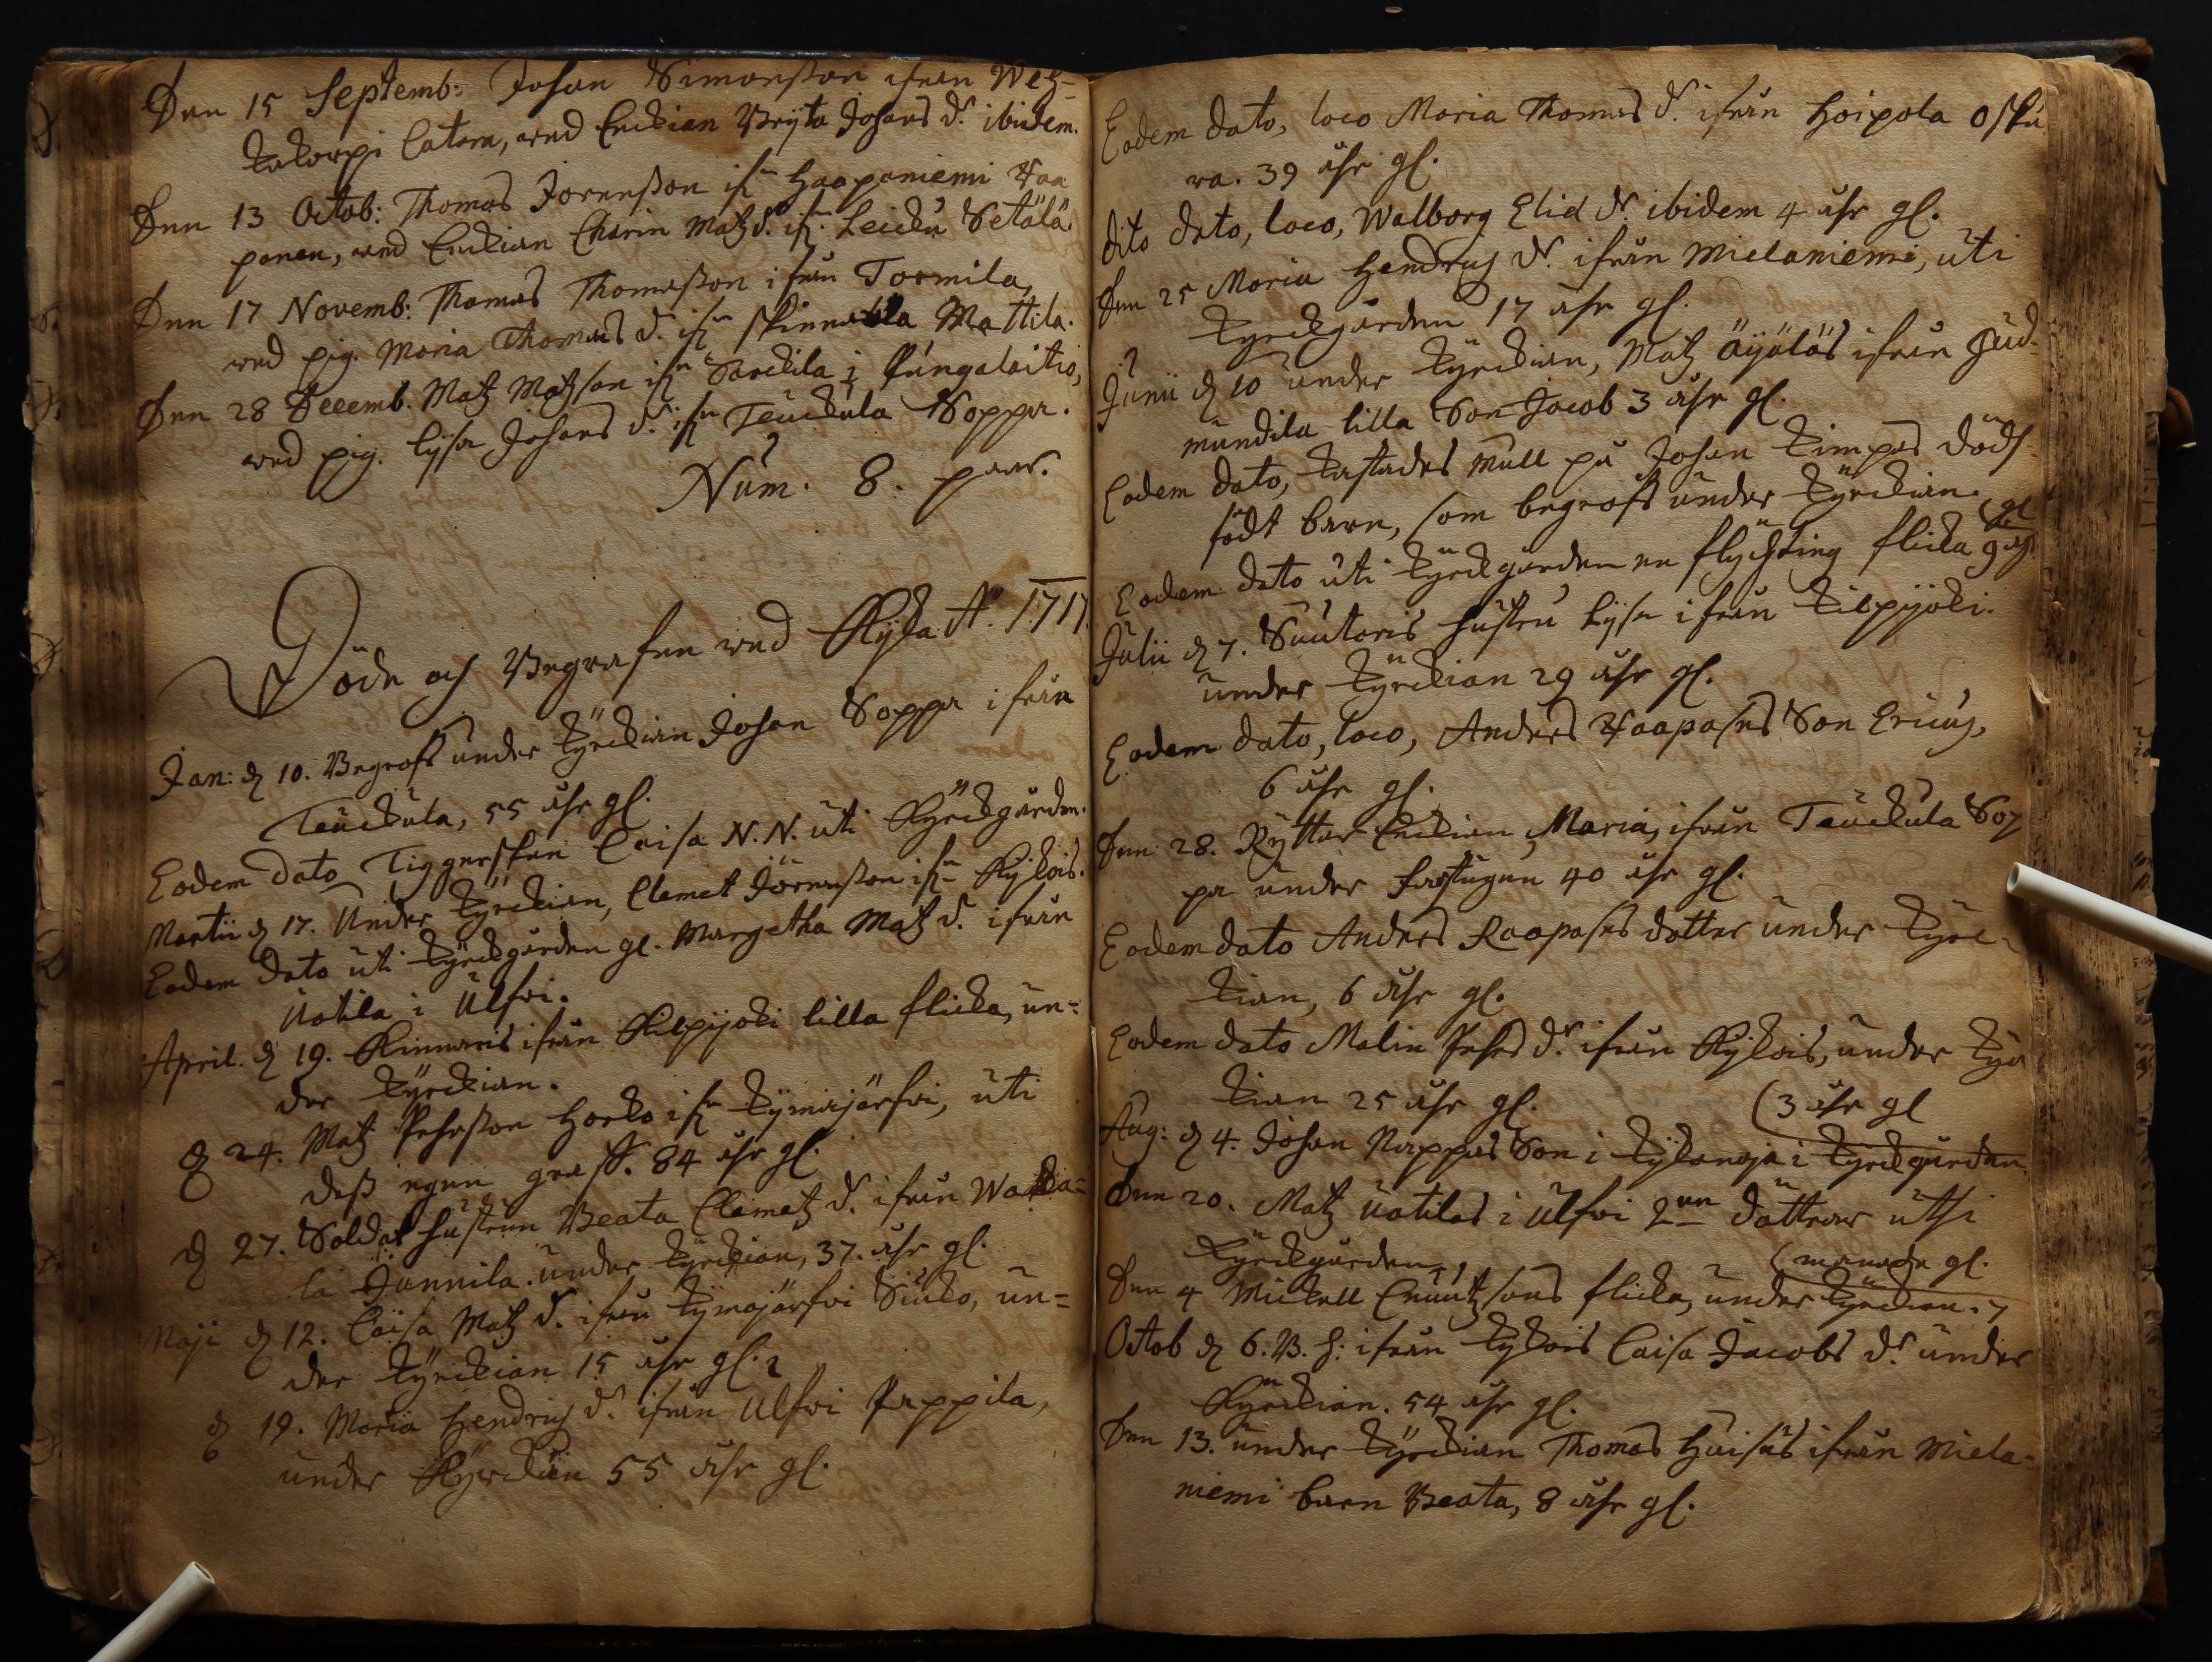 Den 15 Septemb: Johan Simonsson ifrån Wetz-
kakorpi Catara, med Enckian Bryta Johans d:r ibidem.
Den 13 Octob: Thomas Jörensson if:n Haapaniemi Kaa
panen, med Enckian Charin Matz d:r if:n Leicku Setälä
Den 17 Novemb: Thomas Thomasson ifrån Tormila,
med pig. Maria Thomas d:r if:n Skinnarila Mattila.
Den 28 Decemb. Matz Matzson if:n Sarckila i Pungalaitio,
med pig. Lysa Johans d:r if:n Teuckula Soppa.
Num. 8. paar.
Döde och Begrafne wed Kyka A:o 1717.
Jan: d. 10. Begrofs under Kyrckian Johan Soppa ifrån
Teuckula, 55 åhr gl.
Eodem dato Tiggerskan Caisa N.N. uti Kyrckgården.
Martii d. 17. Under Kyrckian, Clemet Jörensson if:n Kykois.
Eodem dato uti Kyrckgården gl. Margetha Matz d:r ifrån
Uotila i Ulfvi.
April. d. 19. Kinnaris ifrån Kilpijoki lilla flicka, un-
der Kyrckian.
d. 24. Matz Pehrsson Horko if:n Kymajärfvi, uti
dess egen graff. 84 åhr gl.
d. 27. Soldat hustrun Beata Clemetz d:r ifrån
la Junnila. under Kyrckian, 37. åhr gl.
Maji d. 12. Caisa Matz d:r ifrån Kymajärfvi Siuko, un-
der Kyrckian 15 åhr gl.
d. 19. Maria Hendrichz d:r ifrån Ulfvi Pappila,
under Kyrckian 55 åhr gl.
Eodem dato, loco Maria Thomas d:r ifrån Hoipola Oska
ra. 39 åhr gl.
dito dato, loco, Walborg Elia d:r ibidem 4 åhr gl.
Den 25 Maria Hendrichz d:r ifrån Mielaniemi, uti
Kyrckgården 17 åhr gl.
Junii d. 10 under Kyrckian, Matz Äyäläs ifrån Gud-
mundila lilla Son Jacob 3 åhr gl.
Eodem dato, kastades mull på Johan Kimpas död-
födt barn, som begrofs under Kyrckian.
(gl
Eodem dato uti Kyrckgården en flychting flicka 9 åhr
Julii d. 7. Suutaris hustru Lysa ifrån Kilpijoki.
under Kyrckian 29 åhr gl.
Eodem dato, loco, Anders Kaapases Son Ericus,
6 åhr gl.
Den 28. Ryttar Enckian, Maria, ifrån Teuckula Sop
pa under farstugun 40 åhr gl.
Eodem dato Anders Kaapases dotter under Kyrc-
kian, 6 åhr gl.
Eodem dato Malin Pehrs d:r ifrån Kykois, under Kyrc
kian 25 åhr gl.
(3 åhr gl
Aug: d. 4. Johan Nappas Son i Kykanoja i Kyrckgården.
Den 20. Matz Uotilas i Ulfvi 2:ne döttrar uthi
Kyrckgården.
(månade gl.
Den 4 Mickell Cnuutzsons flicka, under Kyrckian. 7
Octob d. 6. B. H: ifrån Kykois Caisa Jacobs d:r under
Kyrckian. 54 åhr gl.
Den 13. under Kyrckian Thomas Huisus ifrån Miela-
niemi barn Beata, 8 åhr gl.